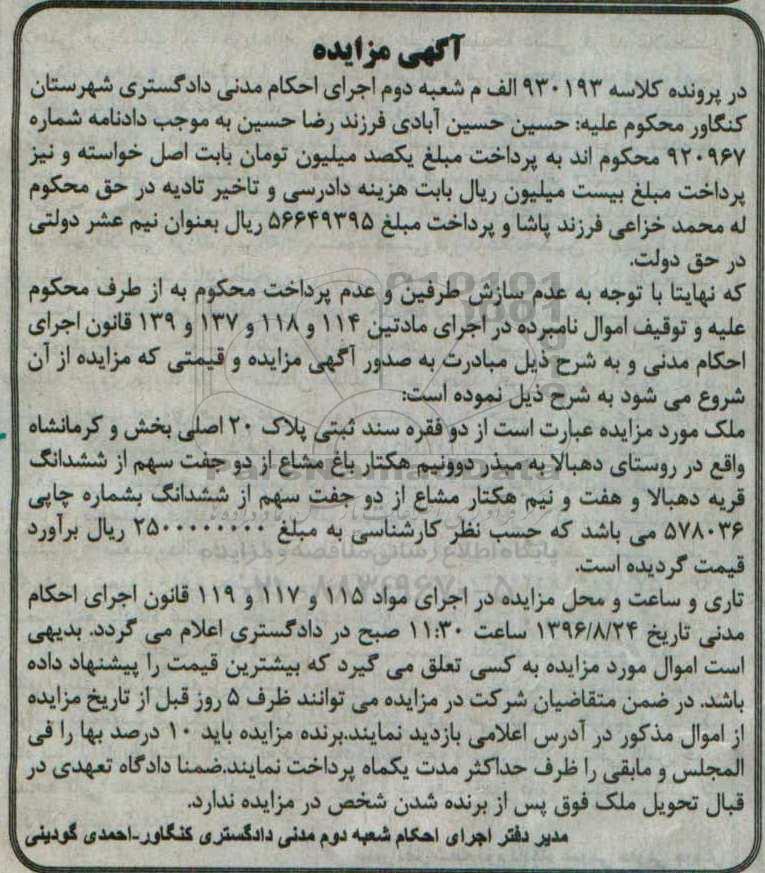 آگهی مزایده
در پرونده کلاسه ۹۳۰۱۹۳ الف م شعبه دوم اجرای احکام مدنی دادگستری شهرستان
کنگاور محکوم علیه: حسین حسین آبادی فرزند رضا حسین به موجب دادنامه شماره
۹۲۰۹۶۷ محکوم اند به پرداخت مبلغ یکصد میلیون تومان بابت اصل خواسته و نیز
پرداخت مبلغ بیست میلیون ریال بابت هزینه دادرسی و تاخیر تادیه در حق محکوم
له محمد خزاعی فرزند پاشا و پرداخت مبلغ ۵۶۶۴۹۳۹۵ ریال بعنوان نیم عشر دولتی
در حق دولت.
که نهایتا با توجه به عدم سازش طرفین و عدم پرداخت محکوم به از طرف محکوم
علیه و توقیف اموال نامبرده در اجرای مادتین ۱۱۴ و ۱۱۸ و ۱۳۷ و ۱۳۹ قانون اجرای
احکام مدنی و به شرح ذیل مبادرت به صدور آگهی مزایده و قیمتی که مزایده از آن
شروع می شود به شرح ذیل نموده است:
ملک مورد مزایده عبارت است از دو فقره سند ثبتی پلاک ۲۰ اصلی بخش و کرمانشاه
واقع در روستای دهبالا به مبذر دوونیم هکتار باغ مشاع از دو جفت سهم از ششدانگ
قریه دهبالا و هفت و نیم هکتار مشاع از دو جفت سهم از ششدانگ بشماره چاپی
۵۷۸۰۳۶ می باشد که حسب نظر کارشناسی به مبلغ ۲۵۰۰۰۰۰۰۰۰ ریال برآورد
قیمت گردیده است.
تاری و ساعت و محل مزایده در اجرای مواد ۱۱۵ و ۱۱۷ و ۱۱۹ قانون اجرای احکام
مدنی تاریخ ۱۳۹۶/۸/۲۴ ساعت ۱۱:۳۰ صبح در دادگستری اعلام می گردد. بدیهی
است اموال مورد مزایده به کسی تعلق می گیرد که بیشترین قیمت را پیشنهاد داده
باشد. در ضمن متقاضیان شرکت در مزایده می توانند ظرف ۵ روز قبل از تاریخ مزایده
از اموال مذکور در آدرس اعلامی بازدید نمایند.برنده مزایده باید ۱۰ درصد بها را فی
المجلس و مابقی را ظرف حداکثر مدت یکماه پرداخت نمایند.ضمنا دادگاه تعهدی در
قبال تحویل ملک فوق پس از برنده شدن شخص در مزایده ندارد.
مدیر دفتر اجرای احکام شعبه دوم مدنی دادگستری کنگاور-احمدی گودینی